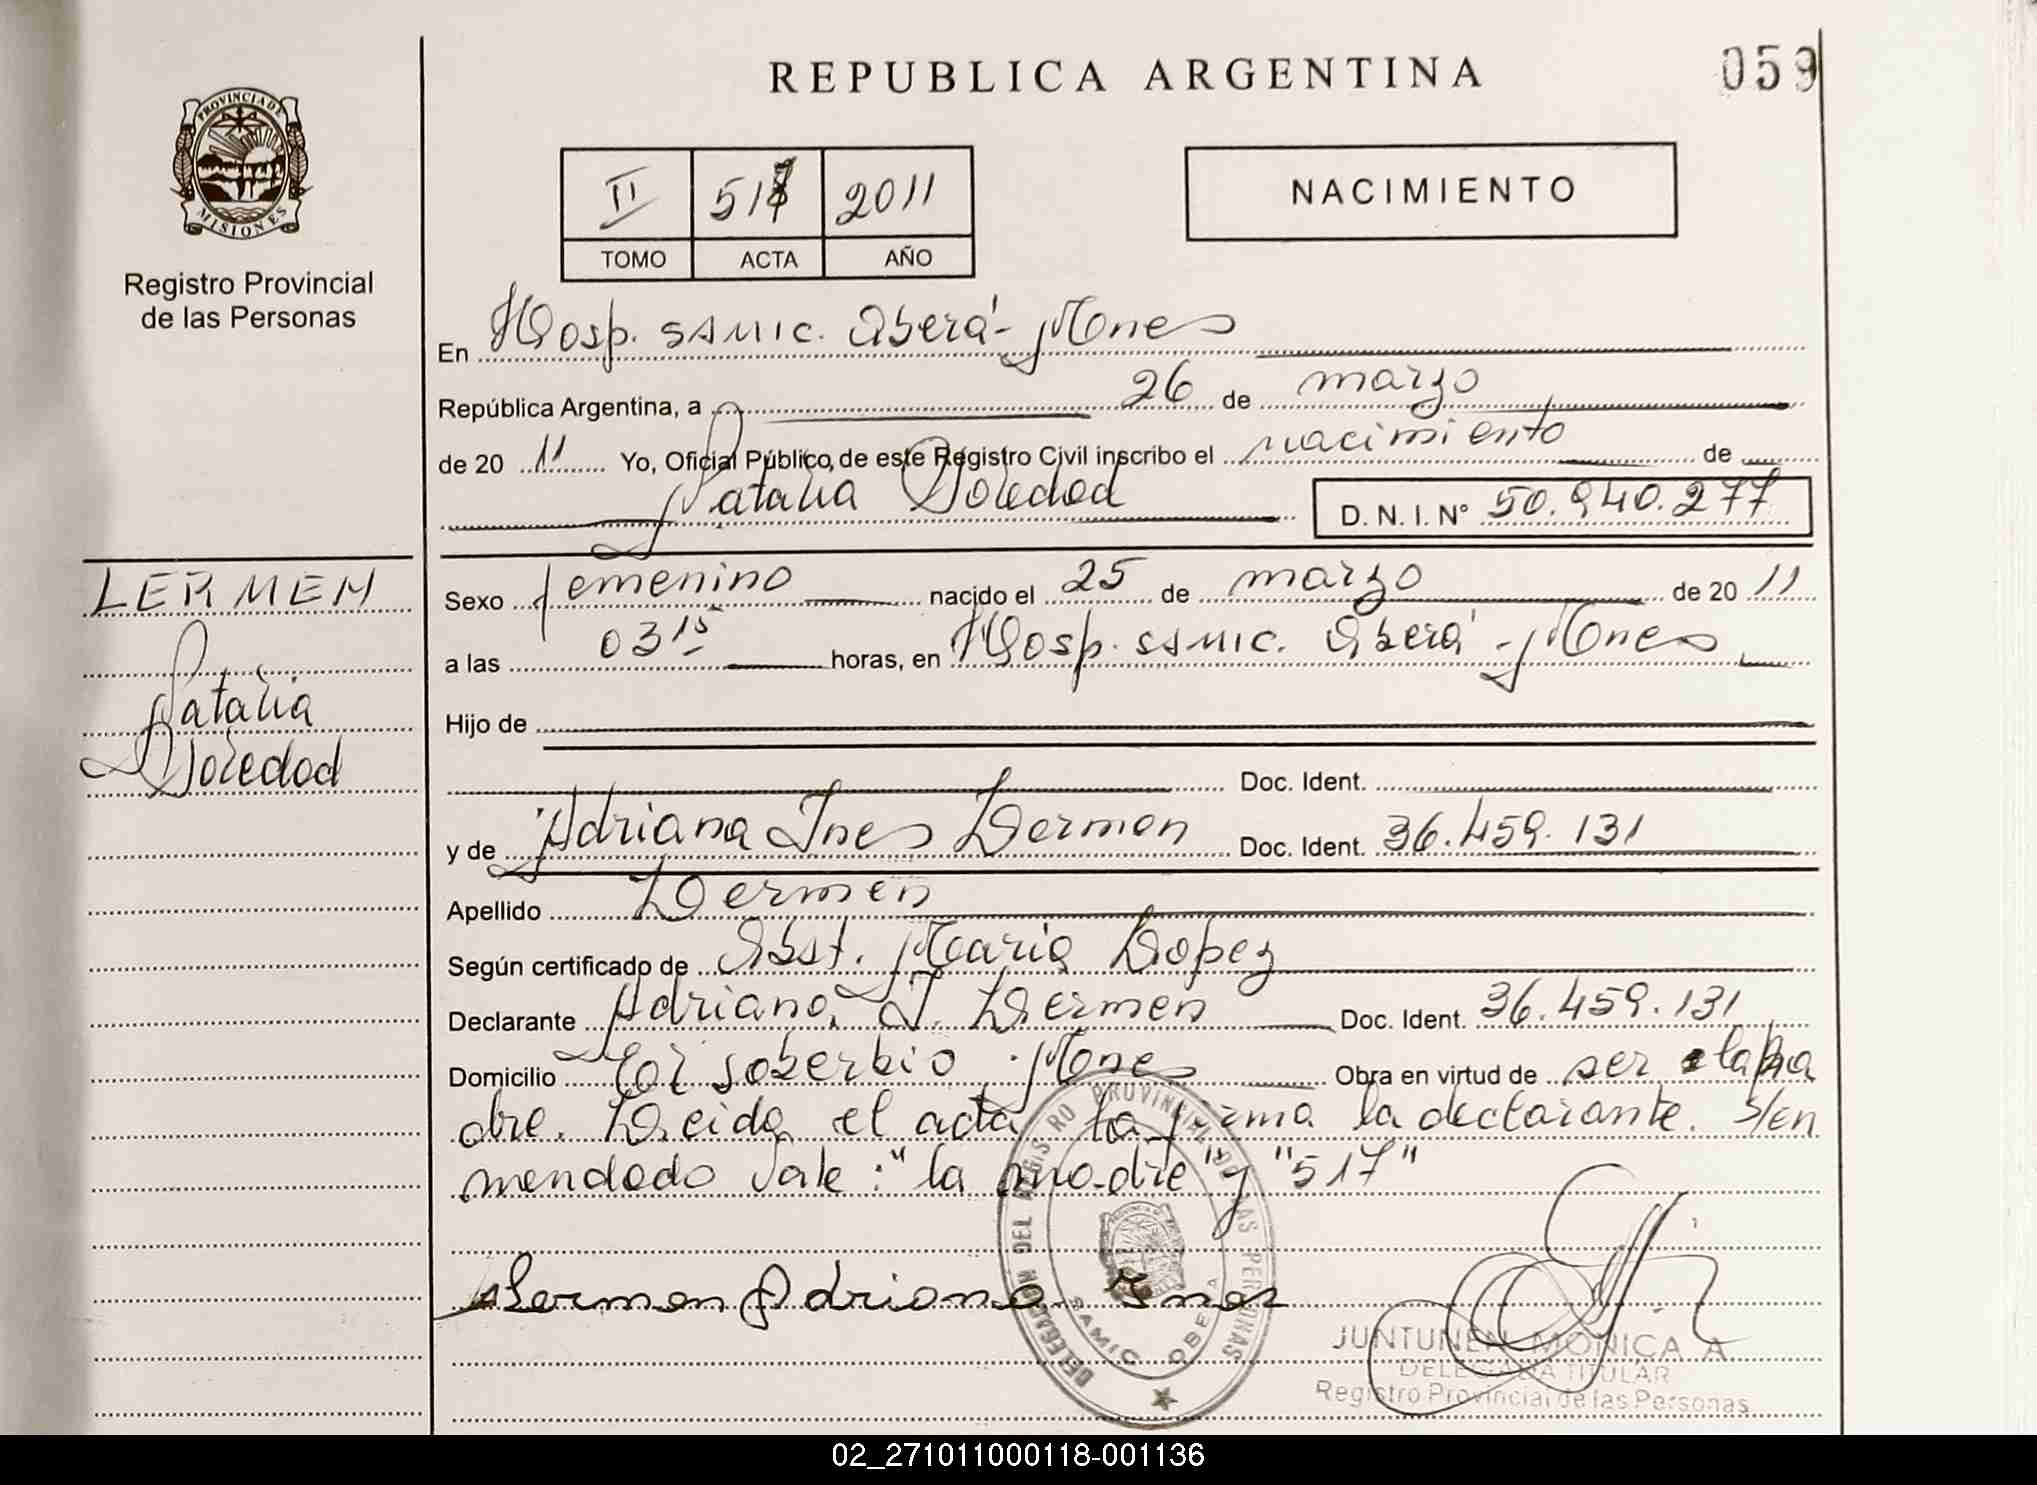 REPUBLICA ARGENTINA
059
PROVINCIA DE
MISIONES
Registro Provincial
de las Personas
II 517 2011
TOMO ACTA AÑO
NACIMIENTO
En Hosp. SAMIC. Oberá - Mnes
República Argentina, a 26 de marzo
de 20 11 Yo, Oficial Público, de este Registro Civil inscribo el nacimiento de
Natalia Soledad
D. N. I. N° 50.940.277
LERMEN
Natalia
Soledad
Sexo femenino nacido el 25 de marzo de 20 11
a las 03 15 horas, en Hosp. SAMIC. Oberá - Mnes
Hijo de
Doc. Ident.
y de Adriana Ines Lermen Doc. Ident. 36.459.131
Apellido Lermen
Según certificado de Obst. Maria Lopez
Declarante Adriana I. Lermen Doc. Ident. 36.459.131
Domicilio Col Soberbio Mnes Obra en virtud de ser la ma
dre. Leida el acta la firma la declarante. S/en
mendado Vale: "la madre" y "517"
Lermen Adriana Ines
DELEGACION DEL REGISTRO PROVINCIAL DE LAS PERSONAS
SAMIC OBERA
JUNTUNEN MONICA A
DELEGADA TITULAR
Registro Provincial de las Personas
02_271011000118-001136